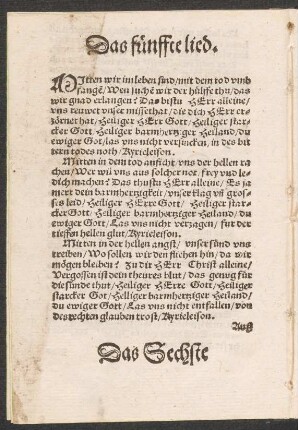 Das fünffte lied.
MItten wir im leben sind/mit dem tod vmb
fangē/ Wen suchē wir der hülffe thu/das
wir gnad erlangen? Das bistu HErr alleine/
vns rewet vnser missethat/die dich HErr er-
zörnet hat/Heiliger HErr Gott/Heiliger star-
cker Gott/Heiliger barmhertziger Heiland/du
ewiger Got/las vns nicht versincken/in des bit
tern todes noth/Kyrieleison.
Mitten in dem tod anficht vns der hellen ra
chen/Wer wil vns aus solcher not/frey vnd le-
dich machen? Das thustu HErr alleine/Es ja
mert dein barmhertzigkeit/vnser klag vn̄ gros-
sis leid/Heiliger HErre Gott/Heiliger star-
cker Gott/Heiliger barmhertziger Heiland/du
ewiger Gott/Las vns nicht verzagen/fur der
tieffen hellen glut/Kyrieleison.
Mitten in der hellen angst/vnser sünd vns
treiben/Wo sollen wir den fliehen hin/da wir
mögen bleiben? Zu dir HErr Christ alleine/
Vergossen ist dein theures blut/das genug für
die sünde thut/Heiliger HErre Gott/Heiliger
starcker Got/Heiliger barmhertziger Heiland/
du ewiger Gott/Las vns nicht entfallen/von
des rechten glauben trost/Kyrieleison.
Auß
Das Sechste